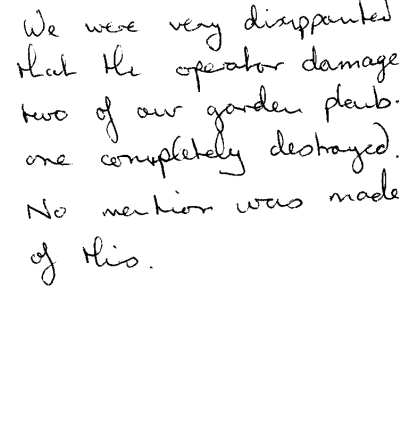 We were very disappointed
that the operator damage
two of our garden plants.
one completely destroyed.
No mention was made
of this.